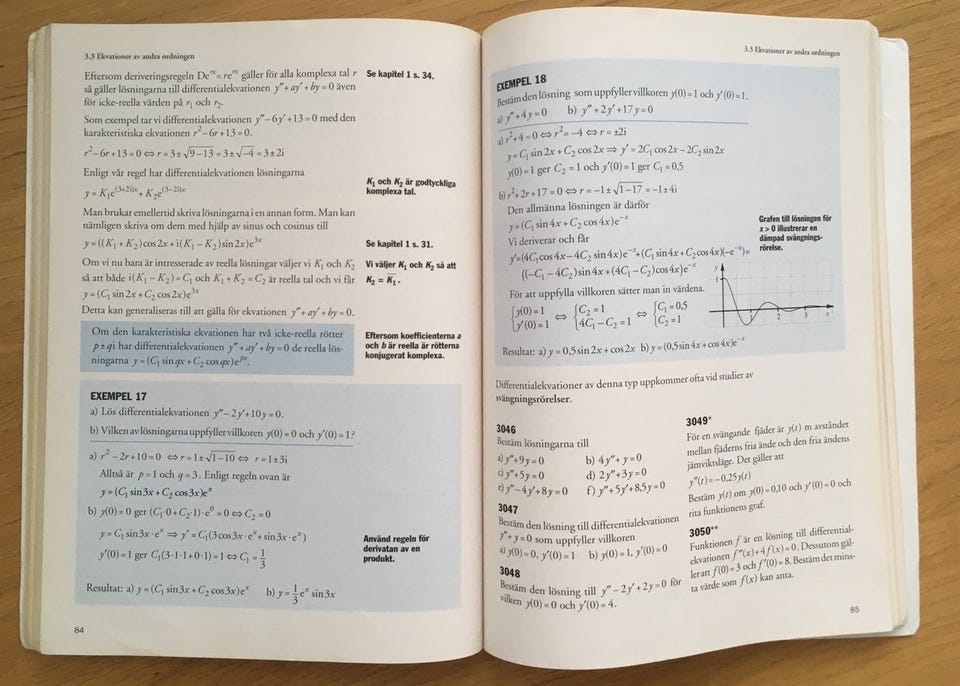 3.3 Ekvationer av andra ordningen
Eftersom deriveringsregeln De^{rx} = re^{rx} gäller för alla komplexa tal r
så gäller lösningarna till differentialekvationen y″ + ay′ + by = 0 även
för icke-reella värden på r₁ och r₂.
Se kapitel 1 s. 34.
Som exempel tar vi differentialekvationen y″ − 6y′ + 13 = 0 med den
karakteristiska ekvationen r² − 6r + 13 = 0.
r² − 6r + 13 = 0 ⇔ r = 3 ± √(9 − 13) = 3 ± √−4 = 3 ± 2i
Enligt vår regel har differentialekvationen lösningarna
y = K₁e^{(3+2i)x} + K₂e^{(3−2i)x}
K₁ och K₂ är godtyckliga
komplexa tal.
Man brukar emellertid skriva lösningarna i en annan form. Man kan
nämligen skriva om dem med hjälp av sinus och cosinus till
y = ((K₁ + K₂) cos 2x + i(K₁ − K₂) sin 2x)e^{3x}
Se kapitel 1 s. 31.
Om vi nu bara är intresserade av reella lösningar väljer vi K₁ och K₂
så att både i(K₁ − K₂) = C₁ och K₁ + K₂ = C₂ är reella tal och vi får
y = (C₁ sin 2x + C₂ cos 2x)e^{3x}
Vi väljer K₁ och K₂ så att
K₂ = K̅₁.
Detta kan generaliseras till att gälla för ekvationen y″ + ay′ + by = 0.
Om den karakteristiska ekvationen har två icke-reella rötter
p ± qi har differentialekvationen y″ + ay′ + by = 0 de reella lös-
ningarna y = (C₁ sin qx + C₂ cos qx)e^{px}.
Eftersom koefficienterna a
och b är reella är rötterna
konjugerat komplexa.
EXEMPEL 17
a) Lös differentialekvationen y″ − 2y′ + 10y = 0.
b) Vilken av lösningarna uppfyller villkoren y(0) = 0 och y′(0) = 1?
a) r² − 2r + 10 = 0 ⇔ r = 1 ± √(1 − 10) ⇔ r = 1 ± 3i
Alltså är p = 1 och q = 3. Enligt regeln ovan är
y = (C₁ sin 3x + C₂ cos 3x)e^x
b) y(0) = 0 ger (C₁·0 + C₂·1)·e⁰ = 0 ⇔ C₂ = 0
y = C₁ sin 3x · e^x ⇒ y′ = C₁(3 cos 3x · e^x + sin 3x · e^x)
y′(0) = 1 ger C₁(3·1·1 + 0·1) = 1 ⇔ C₁ = 1/3
Använd regeln för
derivatan av en
produkt.
Resultat: a) y = (C₁ sin 3x + C₂ cos 3x)e^x b) y = 1/3 e^x sin 3x
84
3.3 Ekvationer av andra ordningen
EXEMPEL 18
Bestäm den lösning som uppfyller villkoren y(0) = 1 och y′(0) = 1.
a) y″ + 4y = 0 b) y″ + 2y′ + 17y = 0
a) r² + 4 = 0 ⇔ r² = −4 ⇔ r = ±2i
y = C₁ sin 2x + C₂ cos 2x ⇒ y′ = 2C₁ cos 2x − 2C₂ sin 2x
y(0) = 1 ger C₂ = 1 och y′(0) = 1 ger C₁ = 0,5
b) r² + 2r + 17 = 0 ⇔ r = −1 ± √(1 − 17) = −1 ± 4i
Den allmänna lösningen är därför
y = (C₁ sin 4x + C₂ cos 4x)e^{−x}
Vi deriverar och får
y′ = (4C₁ cos 4x − 4C₂ sin 4x)e^{−x} + (C₁ sin 4x + C₂ cos 4x)(−e^{−x}) =
((−C₁ − 4C₂) sin 4x + (4C₁ − C₂) cos 4x)e^{−x}
Grafen till lösningen för
x > 0 illustrerar en
dämpad svängnings-
rörelse.
För att uppfylla villkoren sätter man in värdena.
{y(0) = 1 ⇔ {C₂ = 1 ⇔ {C₁ = 0,5
{y′(0) = 1 {4C₁ − C₂ = 1 {C₂ = 1
y
1
1 2 3 x
Resultat: a) y = 0,5 sin 2x + cos 2x b) y = (0,5 sin 4x + cos 4x)e^{−x}
Differentialekvationer av denna typ uppkommer ofta vid studier av
svängningsrörelser.
3046
Bestäm lösningarna till
a) y″ + 9y = 0 b) 4y″ + y = 0
c) y″ + 5y = 0 d) 2y″ + 3y = 0
e) y″ − 4y′ + 8y = 0 f) y″ + 5y′ + 8,5y = 0
3047
Bestäm den lösning till differentialekvationen
y″ + y = 0 som uppfyller villkoren
a) y(0) = 0, y′(0) = 1 b) y(0) = 1, y′(0) = 0
3048
Bestäm den lösning till y″ − 2y′ + 2y = 0 för
vilken y(0) = 0 och y′(0) = 4.
3049*
För en svängande fjäder är y(t) m avståndet
mellan fjäderns fria ände och den fria ändens
jämviktsläge. Det gäller att
y″(t) = −0,25y(t)
Bestäm y(t) om y(0) = 0,10 och y′(0) = 0 och
rita funktionens graf.
3050**
Funktionen f är en lösning till differential-
ekvationen f″(x) + 4f(x) = 0. Dessutom gäl-
ler att f(0) = 3 och f′(0) = 8. Bestäm det mins-
ta värde som f(x) kan anta.
85